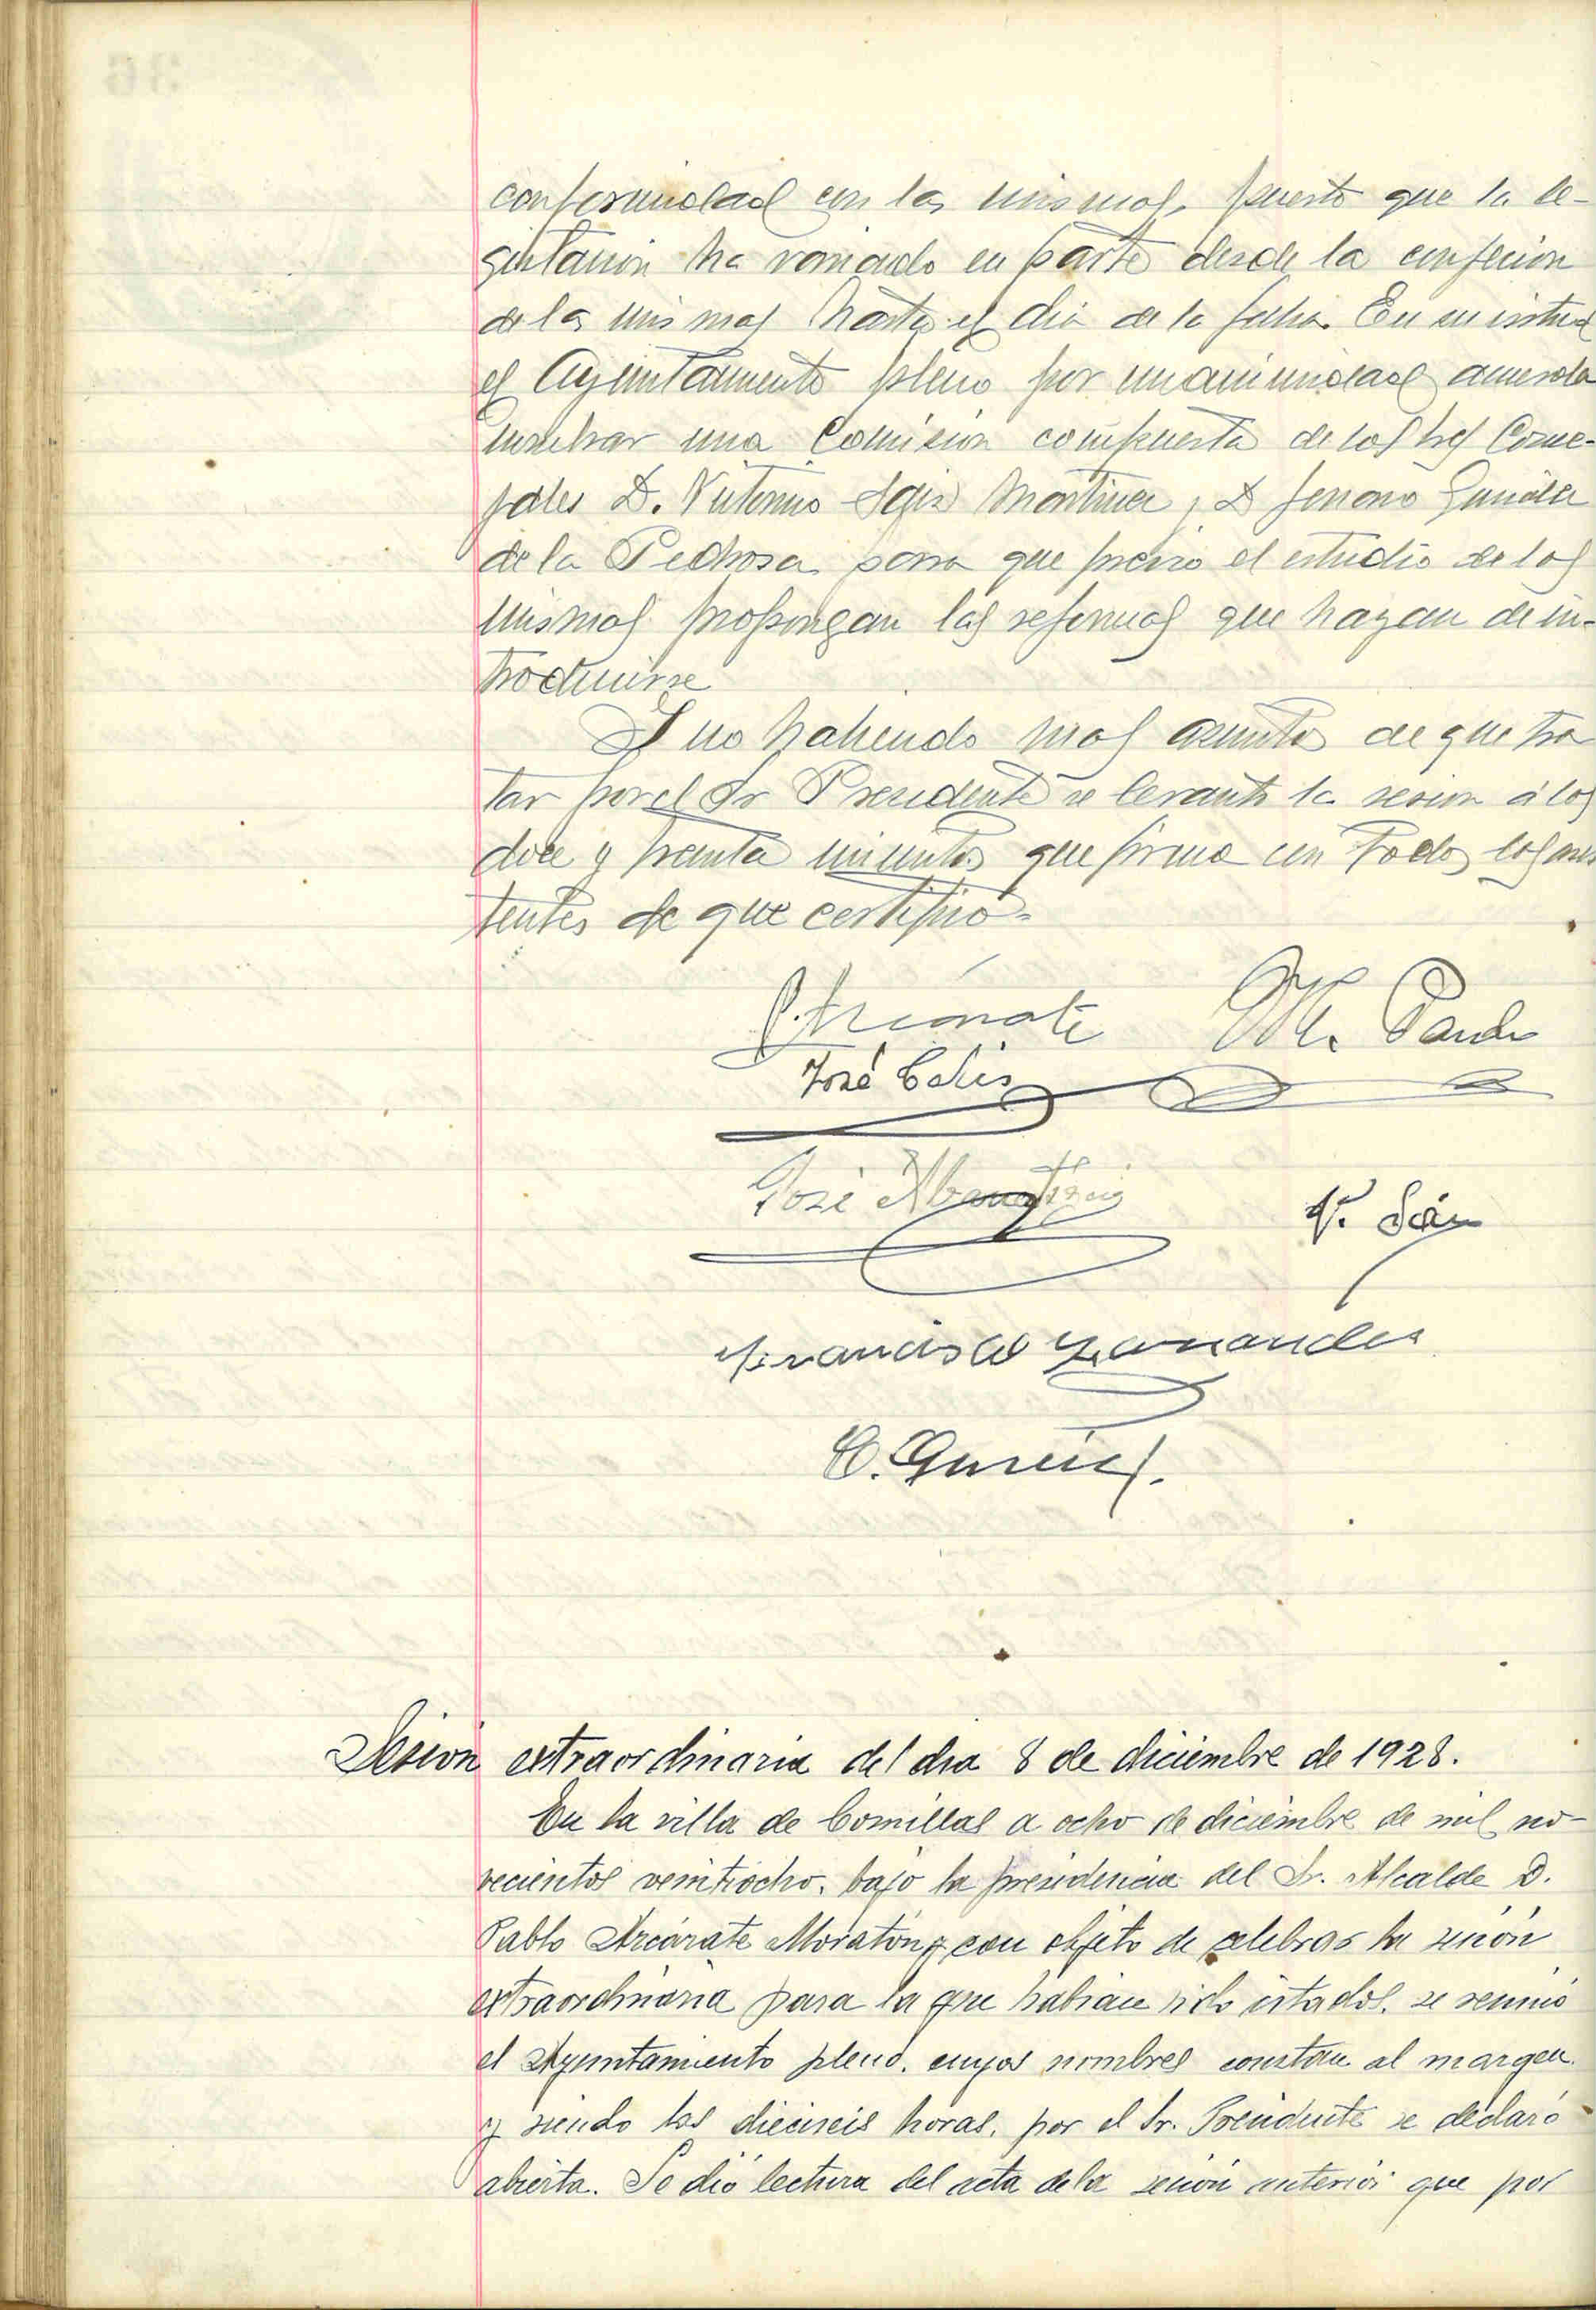 conformidad con las mismas, puesto que la le-
gislacion ha variado en parte desde la confeccion
de las mismas hasta el dia de la fecha. En su virtud
el Ayuntamiento pleno por unanimidad acuerda
nombrar una Comision compuesta de los tres Conce-
jales D. Victorino Saiz Martinez, D Jenaro Gonzalez
de la Pedrosa para que previo el estudio de las
mismas propongan las reformas que hayan de in-
troducirse
Y no habiendo mas asuntos de que tra
tar por el Sr Presidente se levanto la sesion a las
doce y treinta minutos que firma con todos los asis
tentes de que certifico.
P. Azcarate
José Celis
José
V. Sáiz
Francisco Fernandez
Sesión extraordinaria del dia 8 de diciembre de 1928.
En la villa de Comillas a ocho de diciembre de mil no-
vecientos veintiocho, bajo la presidencia del Sr. Alcalde D.
Pablo Azcárate Moratón y con objeto de celebrar la sesión
extraordinaria para la que habian sido citados, se reunió
el Ayuntamiento pleno, cuyos nombres constan al margen
y siendo las dieciseis horas, por el Sr. Presidente se declaró
abierta. Se dió lectura del acta de la sesión anterior que por